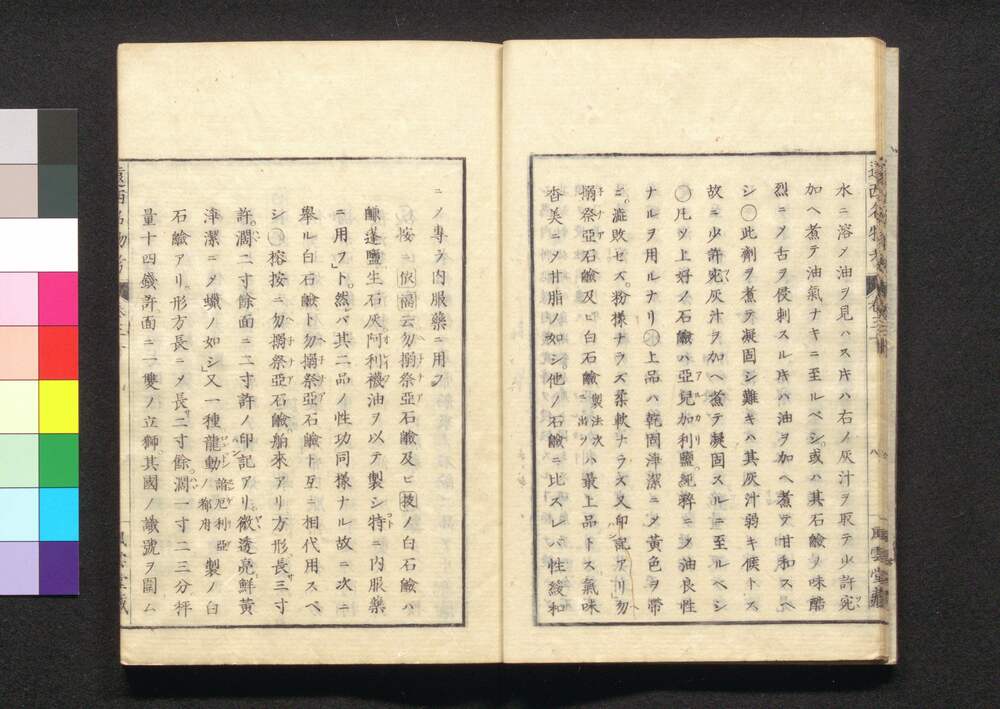 水ニ溶メ油ヲ見ハス片ハ右ノ灰汁ヲ取テ少許宛
加ヘ煮テ油氣ナキニ至ルベシ或ハ其石鹼ノ味酷
烈ニメ舌ヲ侵刺スル片ハ油ヲ加ヘ煮テ甘和スベ
シ○此劑ヲ煮テ凝固シ難キハ其灰汁弱キ候トス
故ニ少許宛灰汁ヲ加ヘ煮テ凝固スルニ至ルベシ
○凡ソ上好ノ石鹼ハ亞兒加利鹽純粹ニメ油良性
ナルヲ用ルナリ○上品ハ乾固淨潔ニメ黃色ヲ帶
ニ澁敗セズ粉樣ナラズ柔軟ナラズ又印記アリ勿
搦祭亞石鹼及ビ白石鹼製法次ニ出ヅハ最上品トス氣味
杏美ニメ甘脂ノ如シ他ノ石鹼ニ比スレバ性緩和
遠西名物考
風雲堂藏
ニノ專ラ内服藥ニ用フ
按ニ依蘭云勿搦祭亞石鹼及ビ扶ノ白石鹼ハ
鹻蓬鹽生石灰阿利襪油ヲ以テ製シ特ニ内服藥
ニ用フト然バ其二品ノ性功同樣ナル故ニ次ニ
舉ル白石鹼ト勿搦祭亞石鹼ト互ニ相代用スベ
シ○榕按ニ勿搦祭亞石鹼舶來アリ方形長三寸
許濶二寸餘面ニ二寸許ノ印記アリ微透亮鮮黃
淨潔ニメ蠟ノ如シ又一種龍動諳厄利亞ノ都府製ノ白
石鹼アリ形方長ニメ長二寸餘濶一寸二三分秤
量十四錢許面ニ一雙ノ立獅其國ノ識號ヲ圍ム
遠西名物考
風雲堂藏